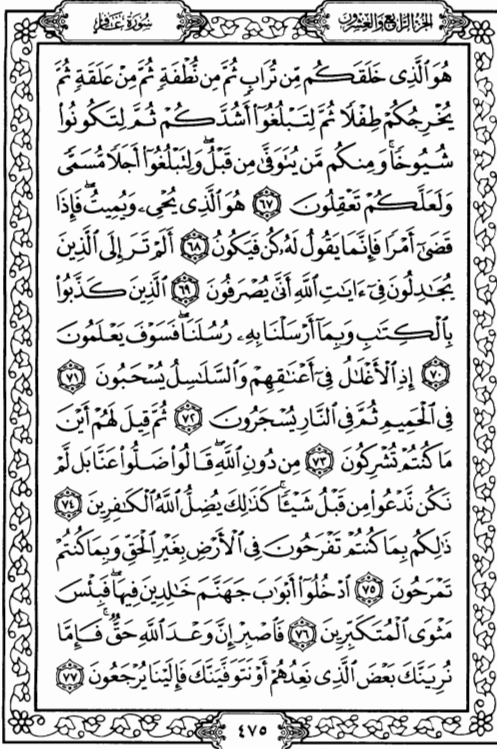 سُورَةُ غَافِرٍ
الجزء الرابع والعشرون
هُوَ ٱلَّذِى خَلَقَكُم مِّن تُرَابٍ ثُمَّ مِن نُّطْفَةٍ ثُمَّ مِنْ عَلَقَةٍ ثُمَّ
يُخْرِجُكُمْ طِفْلًا ثُمَّ لِتَبْلُغُوٓا۟ أَشُدَّكُمْ ثُمَّ لِتَكُونُوا۟
شُيُوخًا ۚ وَمِنكُم مَّن يُتَوَفَّىٰ مِن قَبْلُ ۖ وَلِتَبْلُغُوٓا۟ أَجَلًا مُّسَمًّى
وَلَعَلَّكُمْ تَعْقِلُونَ ٦٧ هُوَ ٱلَّذِى يُحْىِۦ وَيُمِيتُ ۖ فَإِذَا
قَضَىٰٓ أَمْرًا فَإِنَّمَا يَقُولُ لَهُۥ كُن فَيَكُونُ ٦٨ أَلَمْ تَرَ إِلَى ٱلَّذِينَ
يُجَـٰدِلُونَ فِىٓ ءَايَـٰتِ ٱللَّهِ أَنَّىٰ يُصْرَفُونَ ٦٩ ٱلَّذِينَ كَذَّبُوا۟
بِٱلْكِتَـٰبِ وَبِمَآ أَرْسَلْنَا بِهِۦ رُسُلَنَا ۖ فَسَوْفَ يَعْلَمُونَ
٧٠ إِذِ ٱلْأَغْلَـٰلُ فِىٓ أَعْنَـٰقِهِمْ وَٱلسَّلَـٰسِلُ يُسْحَبُونَ ٧١
فِى ٱلْحَمِيمِ ثُمَّ فِى ٱلنَّارِ يُسْجَرُونَ ٧٢ ثُمَّ قِيلَ لَهُمْ أَيْنَ
مَا كُنتُمْ تُشْرِكُونَ ٧٣ مِن دُونِ ٱللَّهِ ۖ قَالُوا۟ ضَلُّوا۟ عَنَّا بَل لَّمْ
نَكُن نَّدْعُوا۟ مِن قَبْلُ شَيْـًٔا ۚ كَذَٰلِكَ يُضِلُّ ٱللَّهُ ٱلْكَـٰفِرِينَ ٧٤
ذَٰلِكُم بِمَا كُنتُمْ تَفْرَحُونَ فِى ٱلْأَرْضِ بِغَيْرِ ٱلْحَقِّ وَبِمَا كُنتُمْ
تَمْرَحُونَ ٧٥ ٱدْخُلُوٓا۟ أَبْوَٰبَ جَهَنَّمَ خَـٰلِدِينَ فِيهَا ۖ فَبِئْسَ
مَثْوَى ٱلْمُتَكَبِّرِينَ ٧٦ فَٱصْبِرْ إِنَّ وَعْدَ ٱللَّهِ حَقٌّ ۚ فَإِمَّا
نُرِيَنَّكَ بَعْضَ ٱلَّذِى نَعِدُهُمْ أَوْ نَتَوَفَّيَنَّكَ فَإِلَيْنَا يُرْجَعُونَ ٧٧
٤٧٥